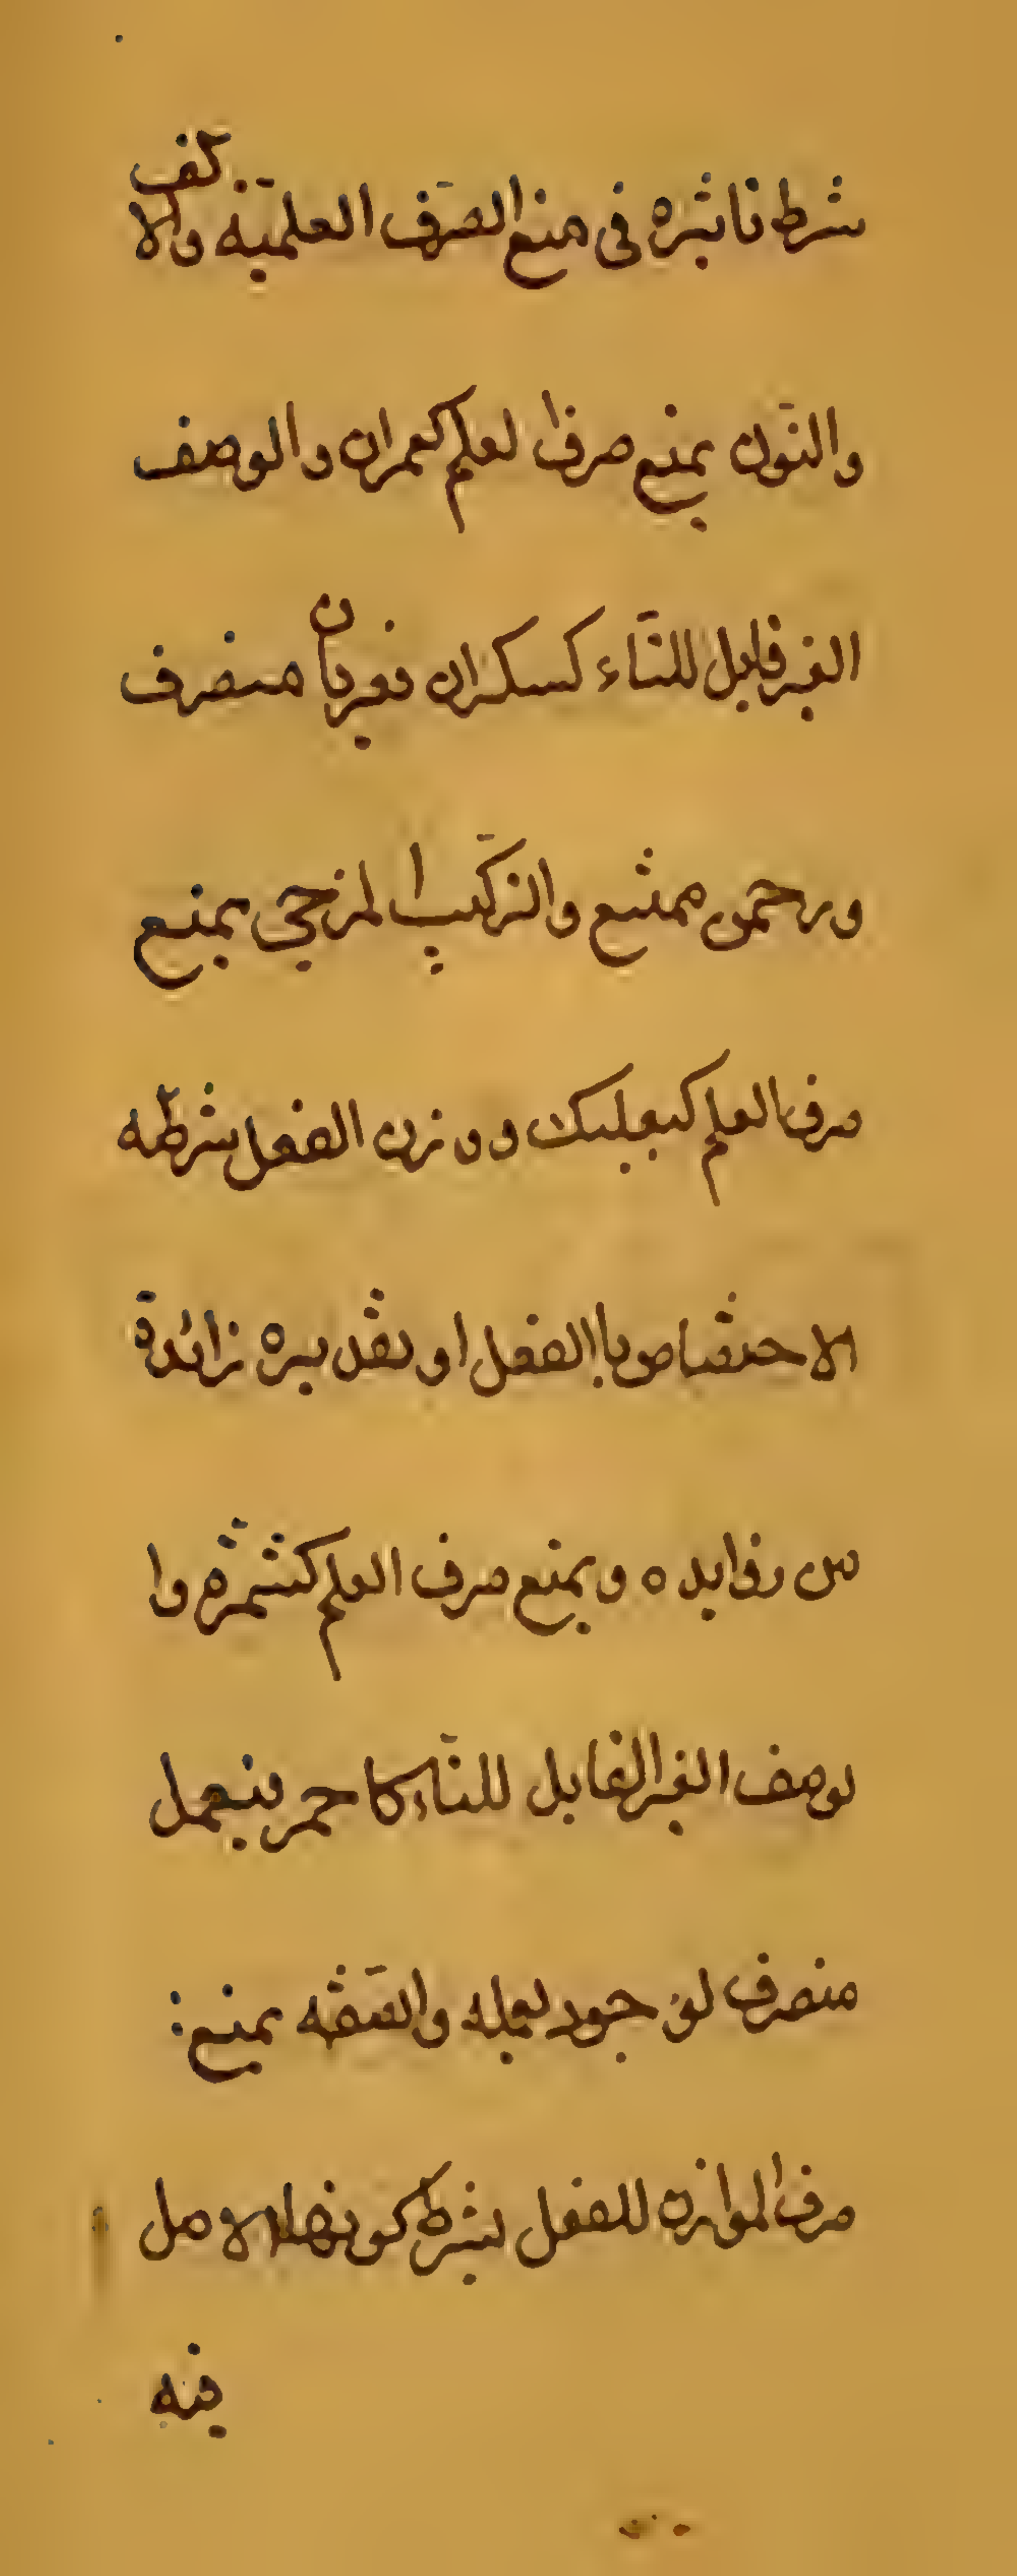 شرط تاثيره في منع الصّرف العلميّة والالف
والنّون يمنع صرف العلم كعمران والوصف
الغير قابل للتّاء كسكران فعريان منصرف
ورحمن ممتنع والتّركيب المزجي يمنع
صرف العلم كبعلبك ووزن الفعل شرطه
الاختصاص باالفعل او تصديره زائدة
من زوايده ويمنع صرف العلم كشمّر وا
لوصف الغير القابل للتّاء كاحمر فيعمل
منصرف لوجود يعمله والصّفه يمنع
صرف الموازن للفعل بشرط كونها الاصل
فيه